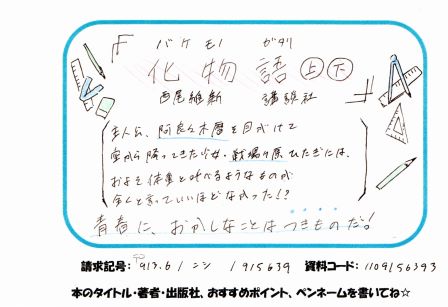 『バケモノ ガタリ
化物語 上 下』
西尾維新 講談社
主人公、阿良々木暦を目がけて
空から降ってきた少女・戦場ヶ原ひたぎには、
およそ体重と呼べるようなものが
全くと言っていいほどなかった!?
青春に、おかしなことはつきものだ!
請求記号: 913.6/ニシ /915639 資料コード: 1109156393
本のタイトル・著者・出版社、おすすめポイント、ペンネームを書いてね☆